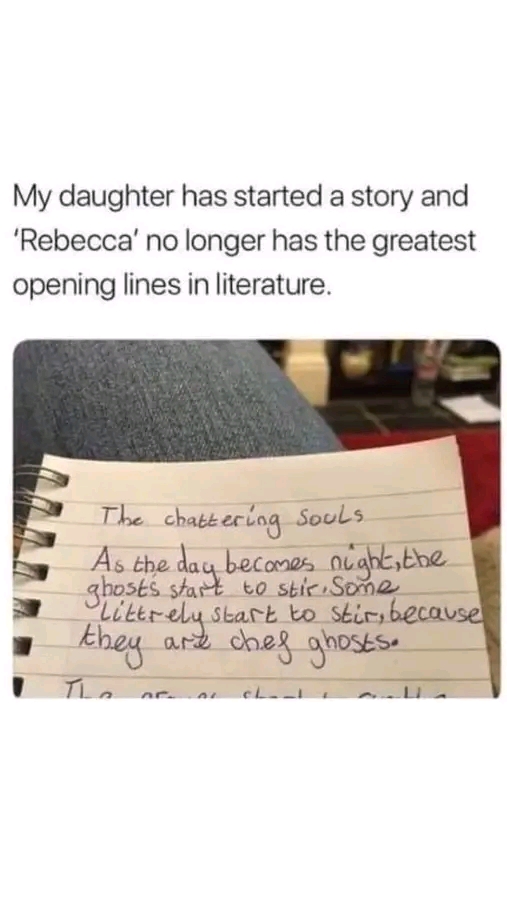 My daughter has started a story and
'Rebecca' no longer has the greatest
opening lines in literature.
The chattering Souls
As the day becomes night, the
ghosts start to stir. Some
Littrely start to stir, because
they are chef ghosts.